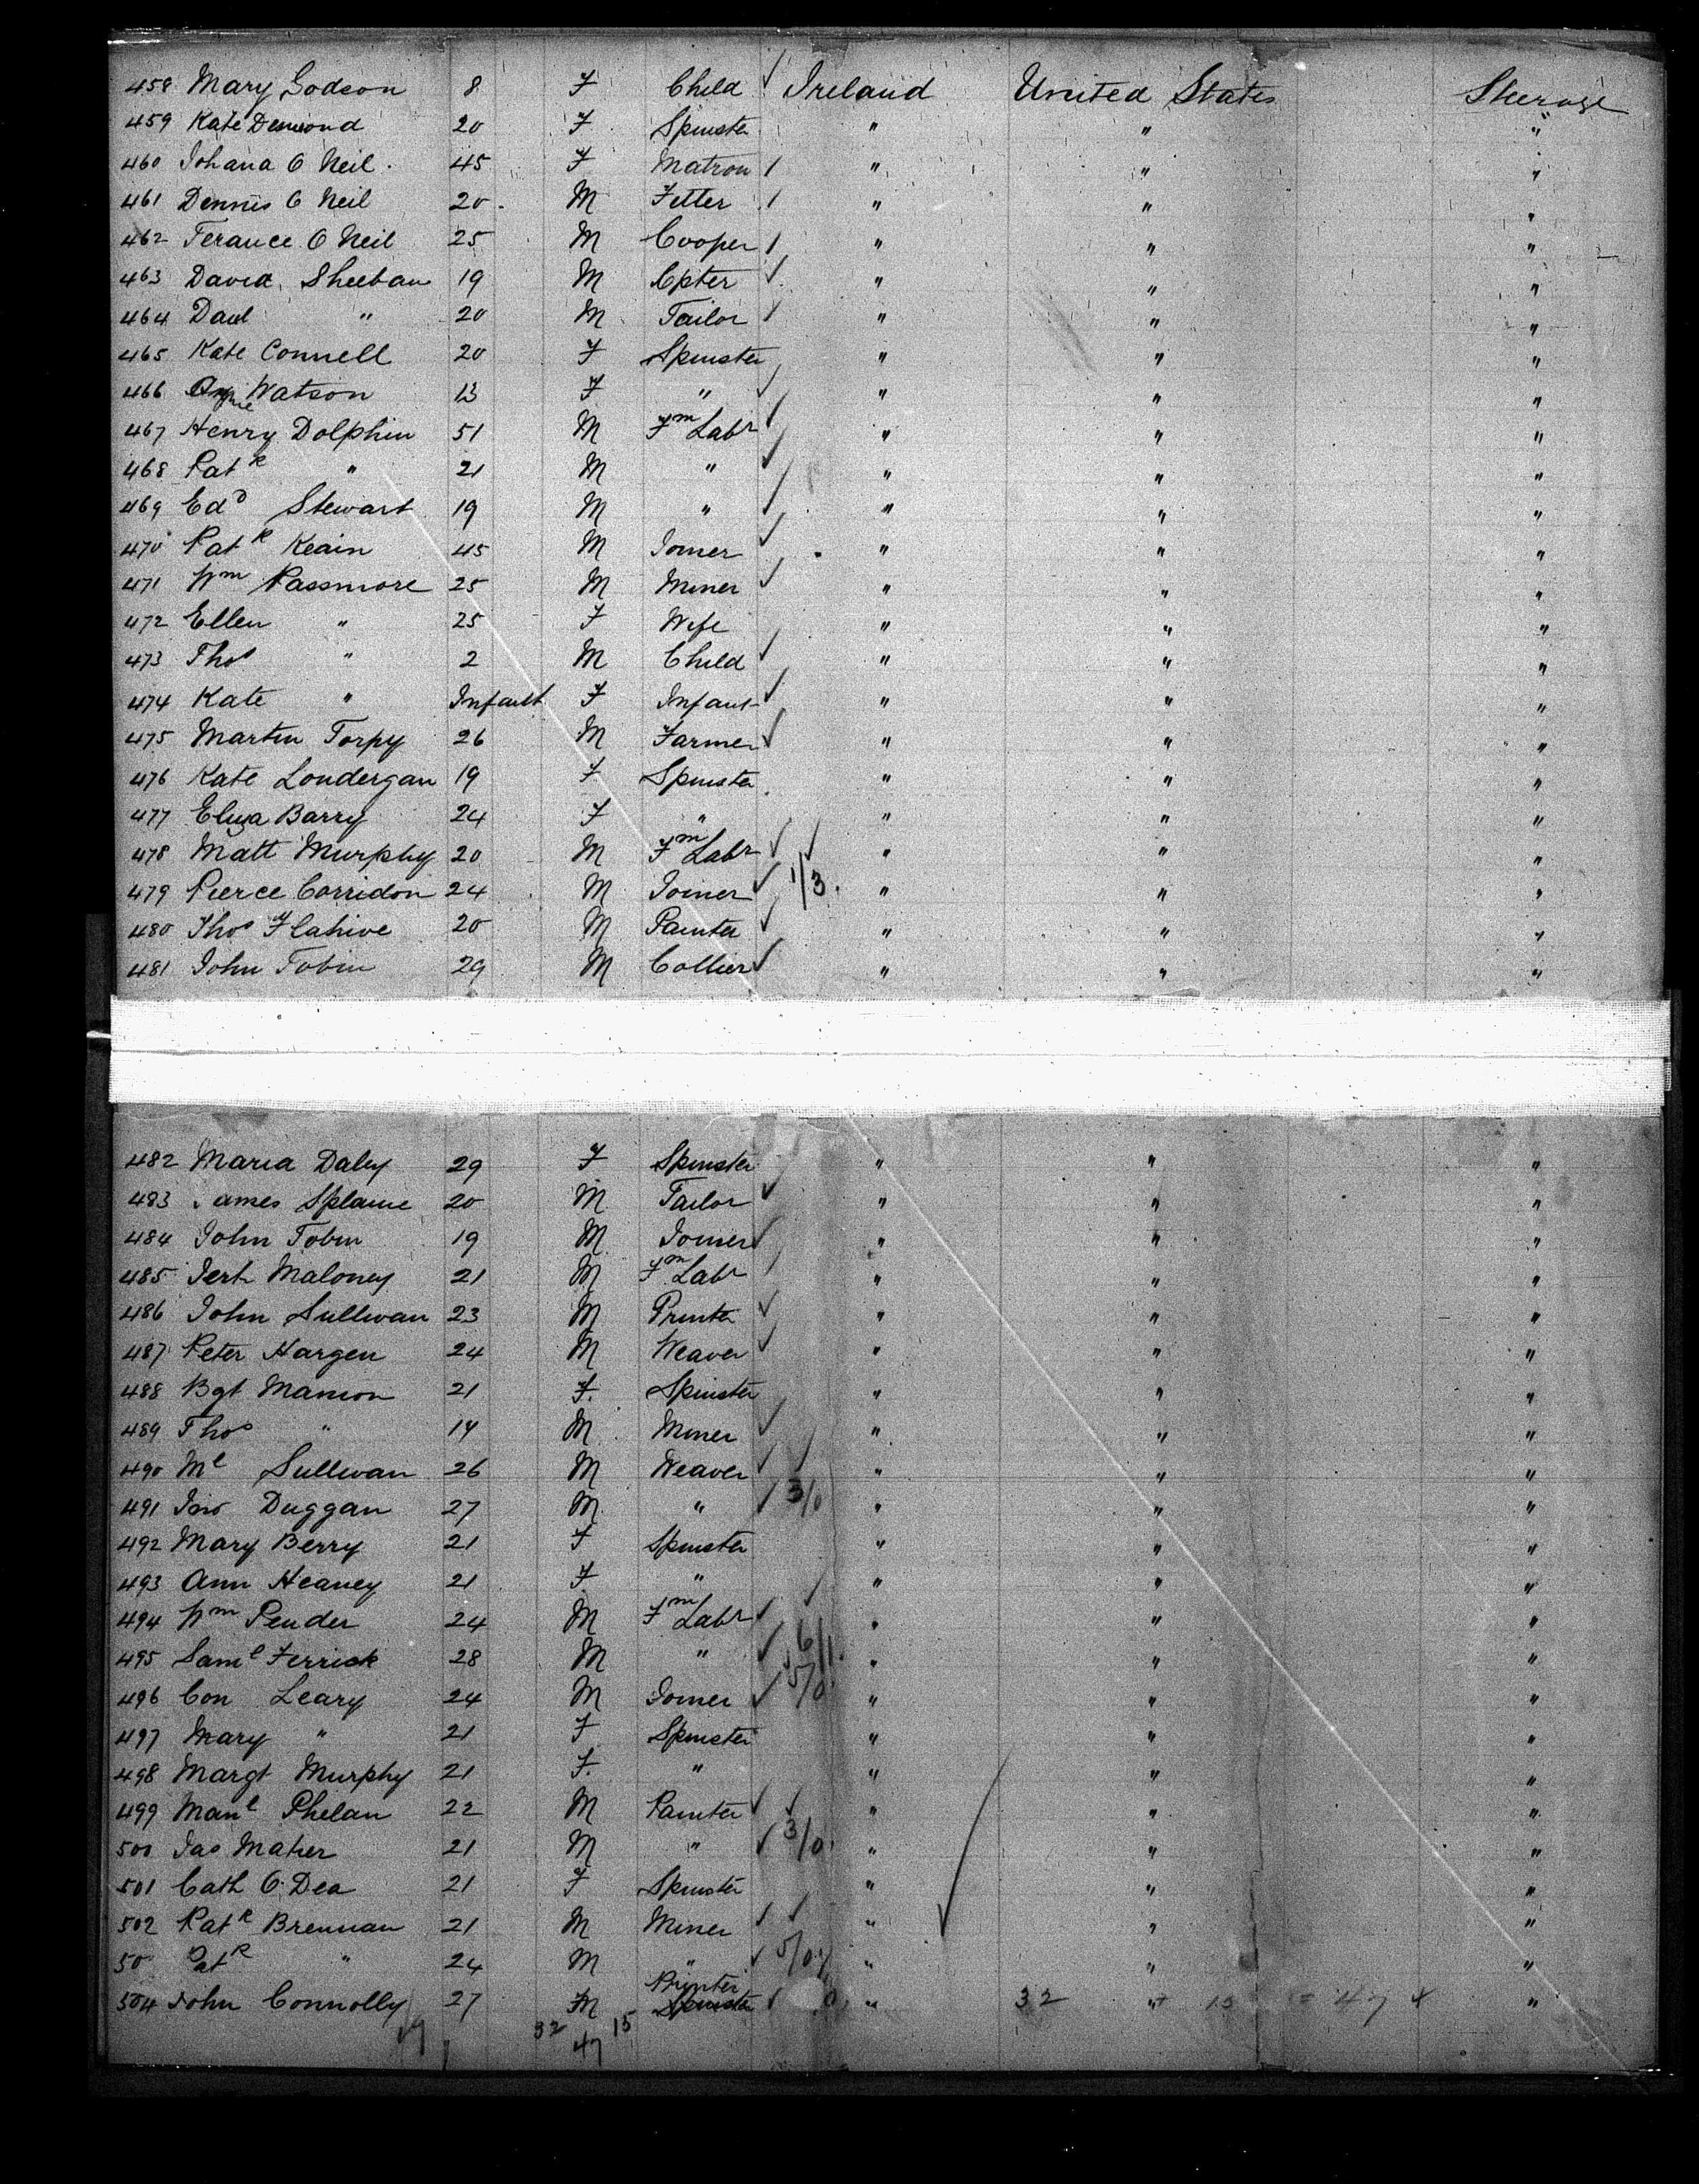 458 Mary Godson 8 F Child ✓ Ireland United States Steerage
459 Kate Desmond 20 F Spinster " " "
460 Johana O Neil 45 F Matron / " " "
461 Dennis O Neil 20 M Fitter / " " "
462 Terance O Neil 25 M Cooper / " " "
463 David Sheehan 19 M Cpter ✓ " " "
464 Danl " 20 M Tailor / " " "
465 Kate Connell 20 F Spinster " " "
466 Annie Watson 13 F " ✓ " " "
467 Henry Dolphin 51 M Fm Labr ✓ " " "
468 Patk " 21 M " ✓ " " "
469 Edd Stewart 19 M " ✓ " " "
470 Patk Keain 45 M Joiner ✓ " " "
471 Wm Passmore 25 M Miner ✓ " " "
472 Ellen " 25 F Wife " " "
473 Thos " 2 M Child ✓ " " "
474 Kate " Infant F Infant ✓ " " "
475 Martin Torpy 26 M Farmer ✓ " " "
476 Kate Londergan 19 F Spinster " " "
477 Eliza Barry 24 F " " " "
478 Matt Murphy 20 M Fm Labr ✓ ✓ " " "
479 Pierce Corridon 24 M Joiner ✓ 1/3 " " "
480 Thos Flahive 20 M Painter ✓ " " "
481 John Tobin 29 M Collier ✓ " " "
482 Maria Daley 29 F Spinster " " "
483 James Splaine 20 M Tailor ✓ " " "
484 John Tobin 19 M Joiner ✓ " " "
485 Jerh Maloney 21 M Fm Labr / " " "
486 John Sullivan 23 M Printer ✓ " " "
487 Peter Hargen 24 M Weaver ✓ " " "
488 Bgt Manion 21 F. Spinster " " "
489 Thos " 14 M Miner ✓ " " "
490 Ml Sullivan 26 M Weaver ✓ ✓ " " "
491 Jno Duggan 27 M " ✓ 3/0 " " "
492 Mary Berry 21 F Spinster " " "
493 Ann Heaney 21 F " " " "
494 Wm Pender 24 M Fm Labr ✓ ✓ " " "
495 Saml Ferrick 28 M " ✓ 6/1 " " "
496 Con Leary 24 M Joiner ✓ 5/0 " " "
497 Mary " 21 F Spinster " " "
498 Margt Murphy 21 F. " " " "
499 Manl Phelan 22 M Painter ✓ ✓ " " "
500 Jas Maher 21 M " ✓ 3/0 " " "
501 Cath O. Dea 21 F Spinster " " "
502 Patk Brennan 21 M Miner ✓ ✓ " " "
50 Patk " 24 M " ✓ 5/0 " " "
504 John Connolly 27 M Printer ✓ " 32 " 15 = 47 "
32 15
47